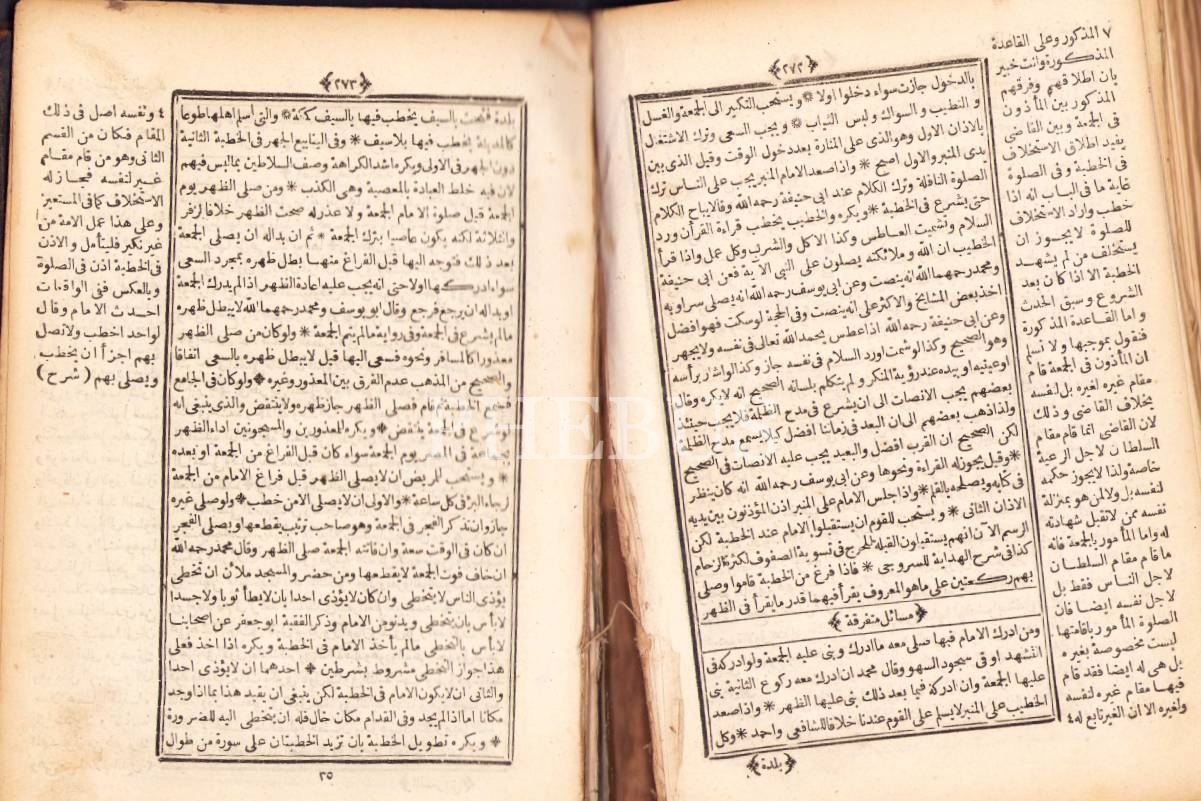 ﴿٢٧٢﴾
بالدخول جازت سواء دخلوا اولا ❊ ويستحب التكبير الى الجمعة والغسل
و التطيب و السواك ولبس الثياب ❊ ويجب السعى وترك الاشتغال
بالاذان الاول وهو الذى على المنارة بعد دخول الوقت وقيل الذى بين
يدى المنبر والاول اصح ❊ واذا صعد الامام المنبر يجب على الناس ترك
الصلوة النافلة وترك الكلام عند ابى حنيفة رحمه الله وقالا يباح الكلام
حتى يشرع فى الخطبة ❊ ويكره والخطيب يخطب قراءة القرأن ورد
السلام وتشميت العاطس وكذا الاكل والشرب وكل عمل واذا قرأ
الخطيب ان الله وملائكته يصلون على النبى الآية فعن ابى حنيفة
ومحمد رحمهما الله انه ينصت وعن ابى يوسف رحمه الله انه يصلى سرا وبه
اخذ بعض المشايخ والاكثر على انه ينصت وفى الحجة لو سكت فهو افضل
وعن ابى حنيفة رحمه الله اذا عطس يحمد الله تعالى فى نفسه ولا يجهر
وهو الصحيح وكذا لو شمت اورد السلام فى نفسه جاز وكذا لو اشار برأسه
او عينيه او بيده عند رؤية المنكر و لم يتكلم بلسانه الصحيح انه لا يكره وقال
بعضهم يجب الانصات الى ان يشرع فى مدح الظلمة فلا يجب حينئذ
ولذا ذهب بعضهم الى ان البعد فى زماننا افضل كيلا يسمع مدح الظلمة
لكن الصحيح ان القرب افضل والبعيد يجب عليه الانصات فى الصحيح
❊ وقيل يجوز له القراءة ونحوها وعن ابى يوسف رحمه الله انه كان ينظر
فى كتابه ويصلحه بالقلم ❊ واذا جلس الامام على المنبر اذن المؤذنون بين يديه
الاذان الثانى ❊ و يستحب للقوم ان يستقبلوا الامام عند الخطبة لكن
الرسم الآن انهم يستقبلون القبلة للحرج فى تسوية الصفوف لكثرة الزحام
كذا فى شرح الهداية للسروجى ❊ فاذا فرغ من الخطبة قاموا وصلى
بهم ركعتين على ما هو المعروف يقرأ فيهما قدر ما يقرأ فى الظهر
﴿مسائل متفرقة﴾
ومن ادرك الامام فيها صلى معه ما ادرك وبنى عليه الجمعة ولو ادركه فى
التشهد او فى سجود السهو وقال محمد ان ادرك معه ركوع الثانية بنى
عليها الجمعة وان ادركه فيما بعد ذلك بنى عليها الظهر ❊ واذا صعد
الخطيب على المنبر لا يسلم على القوم عندنا خلافا للشافعى واحمد ❊ وكل
﴿بلدة﴾
٧ المذكور وعلى القاعدة
المذكورة وانت خبير
بان اطلاقهم وفرقهم
المذكور بين المأذون
فى الجمعة وبين القاضى
يفيد اطلاق الاستخلاف
فى الخطبة وفى الصلوة
غاية ما فى الباب انه اذا
خطب واراد الاستخلاف
للصلوة لا يجوز ان
يستخلف من لم يشهد
الخطبة الا اذا كان بعد
الشروع وسبق الحدث
و اما القاعدة المذكورة
فنقول بموجبها ولا نسلم
ان المأذون فى الجمعة قام
مقام غيره لغيره بل لنفسه
بخلاف القاضى وذلك
لان القاضى انما قام مقام
السلطان لاجل الرعية
خاصة ولذا لا يجوز حكمه
لنفسه بل ولا لمن هو بمنزلة
نفسه ممن لا تقبل شهادته
له واما المأمور بالجمعة فانه
ما قام مقام السلطان
لاجل الناس فقط بل
لاجل نفسه ايضا فان
الصلوة المأمور باقامتها
ليست مخصوصة بغيره
بل هى له ايضا فقد قام
فيها مقام غيره لنفسه
ولغيره الا ان الغير تابع له ٤
﴿٢٧٣﴾
بلدة فتحت بالسيف يخطب فيها بالسيف كمكة ❊ والتى اسلم اهلها طوعا
كالمدينة يخطب فيها بلا سيف ❊ وفى الينابيع الجهر فى الخطبة الثانية
دون الجهر فى الاولى ويكره اشد الكراهة وصف السلاطين بما ليس فيهم
لان فيه خلط العبادة بالمعصية وهى الكذب ❊ ومن صلى الظهر يوم
الجمعة قبل صلوة الامام الجمعة ولا عذر له صحت الظهر خلافا لزفر
والثلاثة لكنه يكون عاصيا بترك الجمعة ❊ ثم ان بدا له ان يصلى الجمعة
بعد ذلك فتوجه اليها قبل الفراغ منها بطل ظهره بمجرد السعى
سواء ادركها اولا حتى انه يجب عليه اعادة الظهر اذا لم يدرك الجمعة
او بدا له ان يرجع فرجع وقال ابو يوسف ومحمد رحمهما الله لا يبطل ظهره
مالم يشرع فى الجمعة وفى رواية مالم يتم الجمعة ❊ ولو كان من صلى الظهر
معذورا كالمسافر ونحوه فسعى اليها قيل لا يبطل ظهره بالسعى اتفاقا
والصحيح من المذهب عدم الفرق بين المعذور وغيره ❊ ولو كان فى الجامع
فسمع الخطبة فقام فصلى الظهر جاز ظهره ولا ينتقض والذى ينبغى انه
شرع فى الجمعة ينتقض ❊ ويكره للمعذورين والمسجونين اداء الظهر
بجماعة فى المصر يوم الجمعة سواء كان قبل الفراغ من الجمعة او بعده
❊ و يستحب للمريض ان لا يصلى الظهر قبل فراغ الامام من الجمعة
لرجاء البرء فى كل ساعة ❊ والاولى ان لا يصلى الا من خطب ❊ ولو صلى غيره
جاز وان تذكر الفجر فى الجمعة وهو صاحب ترتيب يقطعها ويصلى الفجر
ان كان فى الوقت سعة وان فاتته الجمعة صلى الظهر وقال محمد رحمه الله
ان خاف فوت الجمعة لا يقطعها ومن حضر والمسجد ملأن ان تخطى
يؤذى الناس لا يتخطى وان كان لا يؤذى احدا بان لا يطأ ثوبا ولا جسدا
لا بأس بان يتخطى ويدنو من الامام وذكر الفقيه ابو جعفر عن اصحابنا
لا بأس بالتخطى مالم يأخذ الامام فى الخطبة ويكره اذا اخذ فعلى
هذا جواز التخطى مشروط بشرطين ❊ احدهما ان لا يؤذى احدا
والثانى ان لا يكون الامام فى الخطبة لكن ينبغى ان يقيد هذا بما اذا وجد
مكانا اما اذا لم يجد وفى القدام مكان خال فله ان يتخطى اليه للضرورة
❊ ويكره تطويل الخطبة بان تزيد الخطبتان على سورة من طوال
٣٥
٤ ونفسه اصل فى ذلك
المقام فكان من القسم
الثانى وهو من قام مقام
غيره لنفسه فيجاز له
الاستخلاف كما فى المستعير
وعلى هذا عمل الامة من
غير نكير فليتأمل والاذن
فى الخطبة اذن فى الصلوة
وبالعكس ففى الواقعات
احدث الامام وقال
لواحد اخطب ولا تصل
بهم اجزأ ان يخطب
ويصلى بهم (شرح)
PHEBUS